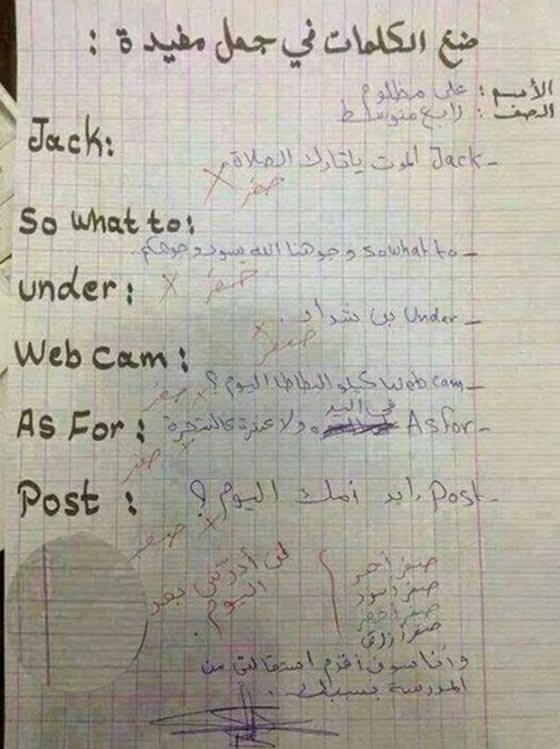 ضع الكلمات في جمل مفيدة :
الأسم : علي مظلوم
الصف : رابع متوسط
Jack:
- Jack الموت ياتارك الصلاة
صفر
So what to:
- sowhat to وجوهنا الله يسود وجوهكم.
under :
صفر
- Under بن شداد .
صفر
Web cam :
- Web cam كيلو البطاطا اليوم ؟
صفر
As For :
- As for في اليد ولا عشرة عالشجرة
صفر
Post :
- Post رايد أمك اليوم ؟
صفر
صفر أحمر
صفر أسود
صفر أخضر
صفر أزرق
لن أدرّس بعد
اليوم .
وأنا سوف أقدم استقالتي من
المدرسة بسببك .